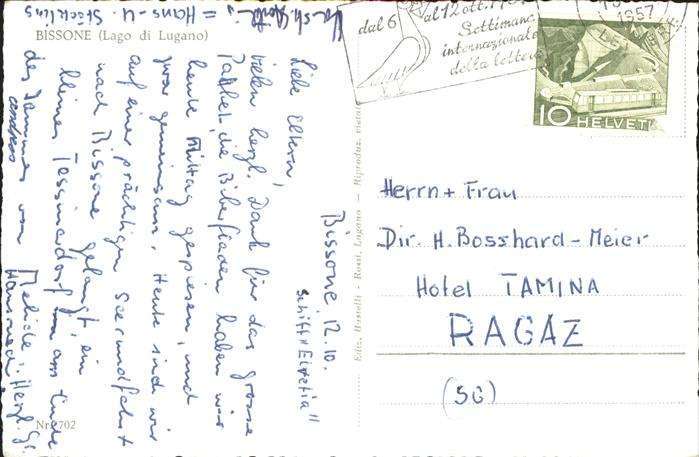 BISSONE (Lago di Lugano)
Bissone 12.10.
Schiff "Elvetia"
Liebe Eltern,
vielen herzl. Dank für das grosse
Packet, die Biberfladen haben wir
heute Mittag gespiesen, und
zwar gemeinsam. Heute sind wir
auf einer prächtigen Seerundfahrt
nach Bissone gelangt, ein
kleines Tessinerdorf am Ende
des Dammes von Melide. Herzl. Gr.
Hansruedi
= Hans-U. Stöcklin
Nr. 702
dal 6 al 12 ott.
Settimana
internazionale
della lettera
1957
10 HELVETIA
Herrn + Frau
Dir. H. Bosshard-Meier
Hotel TAMINA
RAGAZ
(SG)